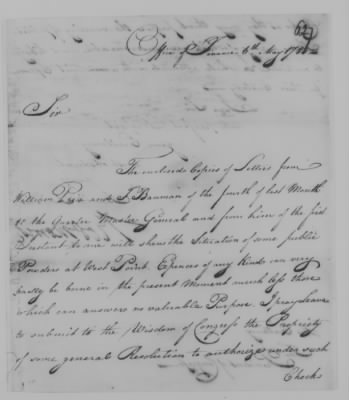 627
Office of Finance 6th May 178
Sir
The enclosed Copies of Letters from
William and S. Bauman of the fourth of last Month
to the Quarter Master General and from him of the first
Instant to me will shew the Situation of some public
Powder at West Point. Expences of any Kind can very
badly be borne in the present Moment much less those
which can answer no valuable Purpose. I pray Leave
to submit to the Wisdom of Congress the Propriety
of some general Resolution to authorize under such
Checks